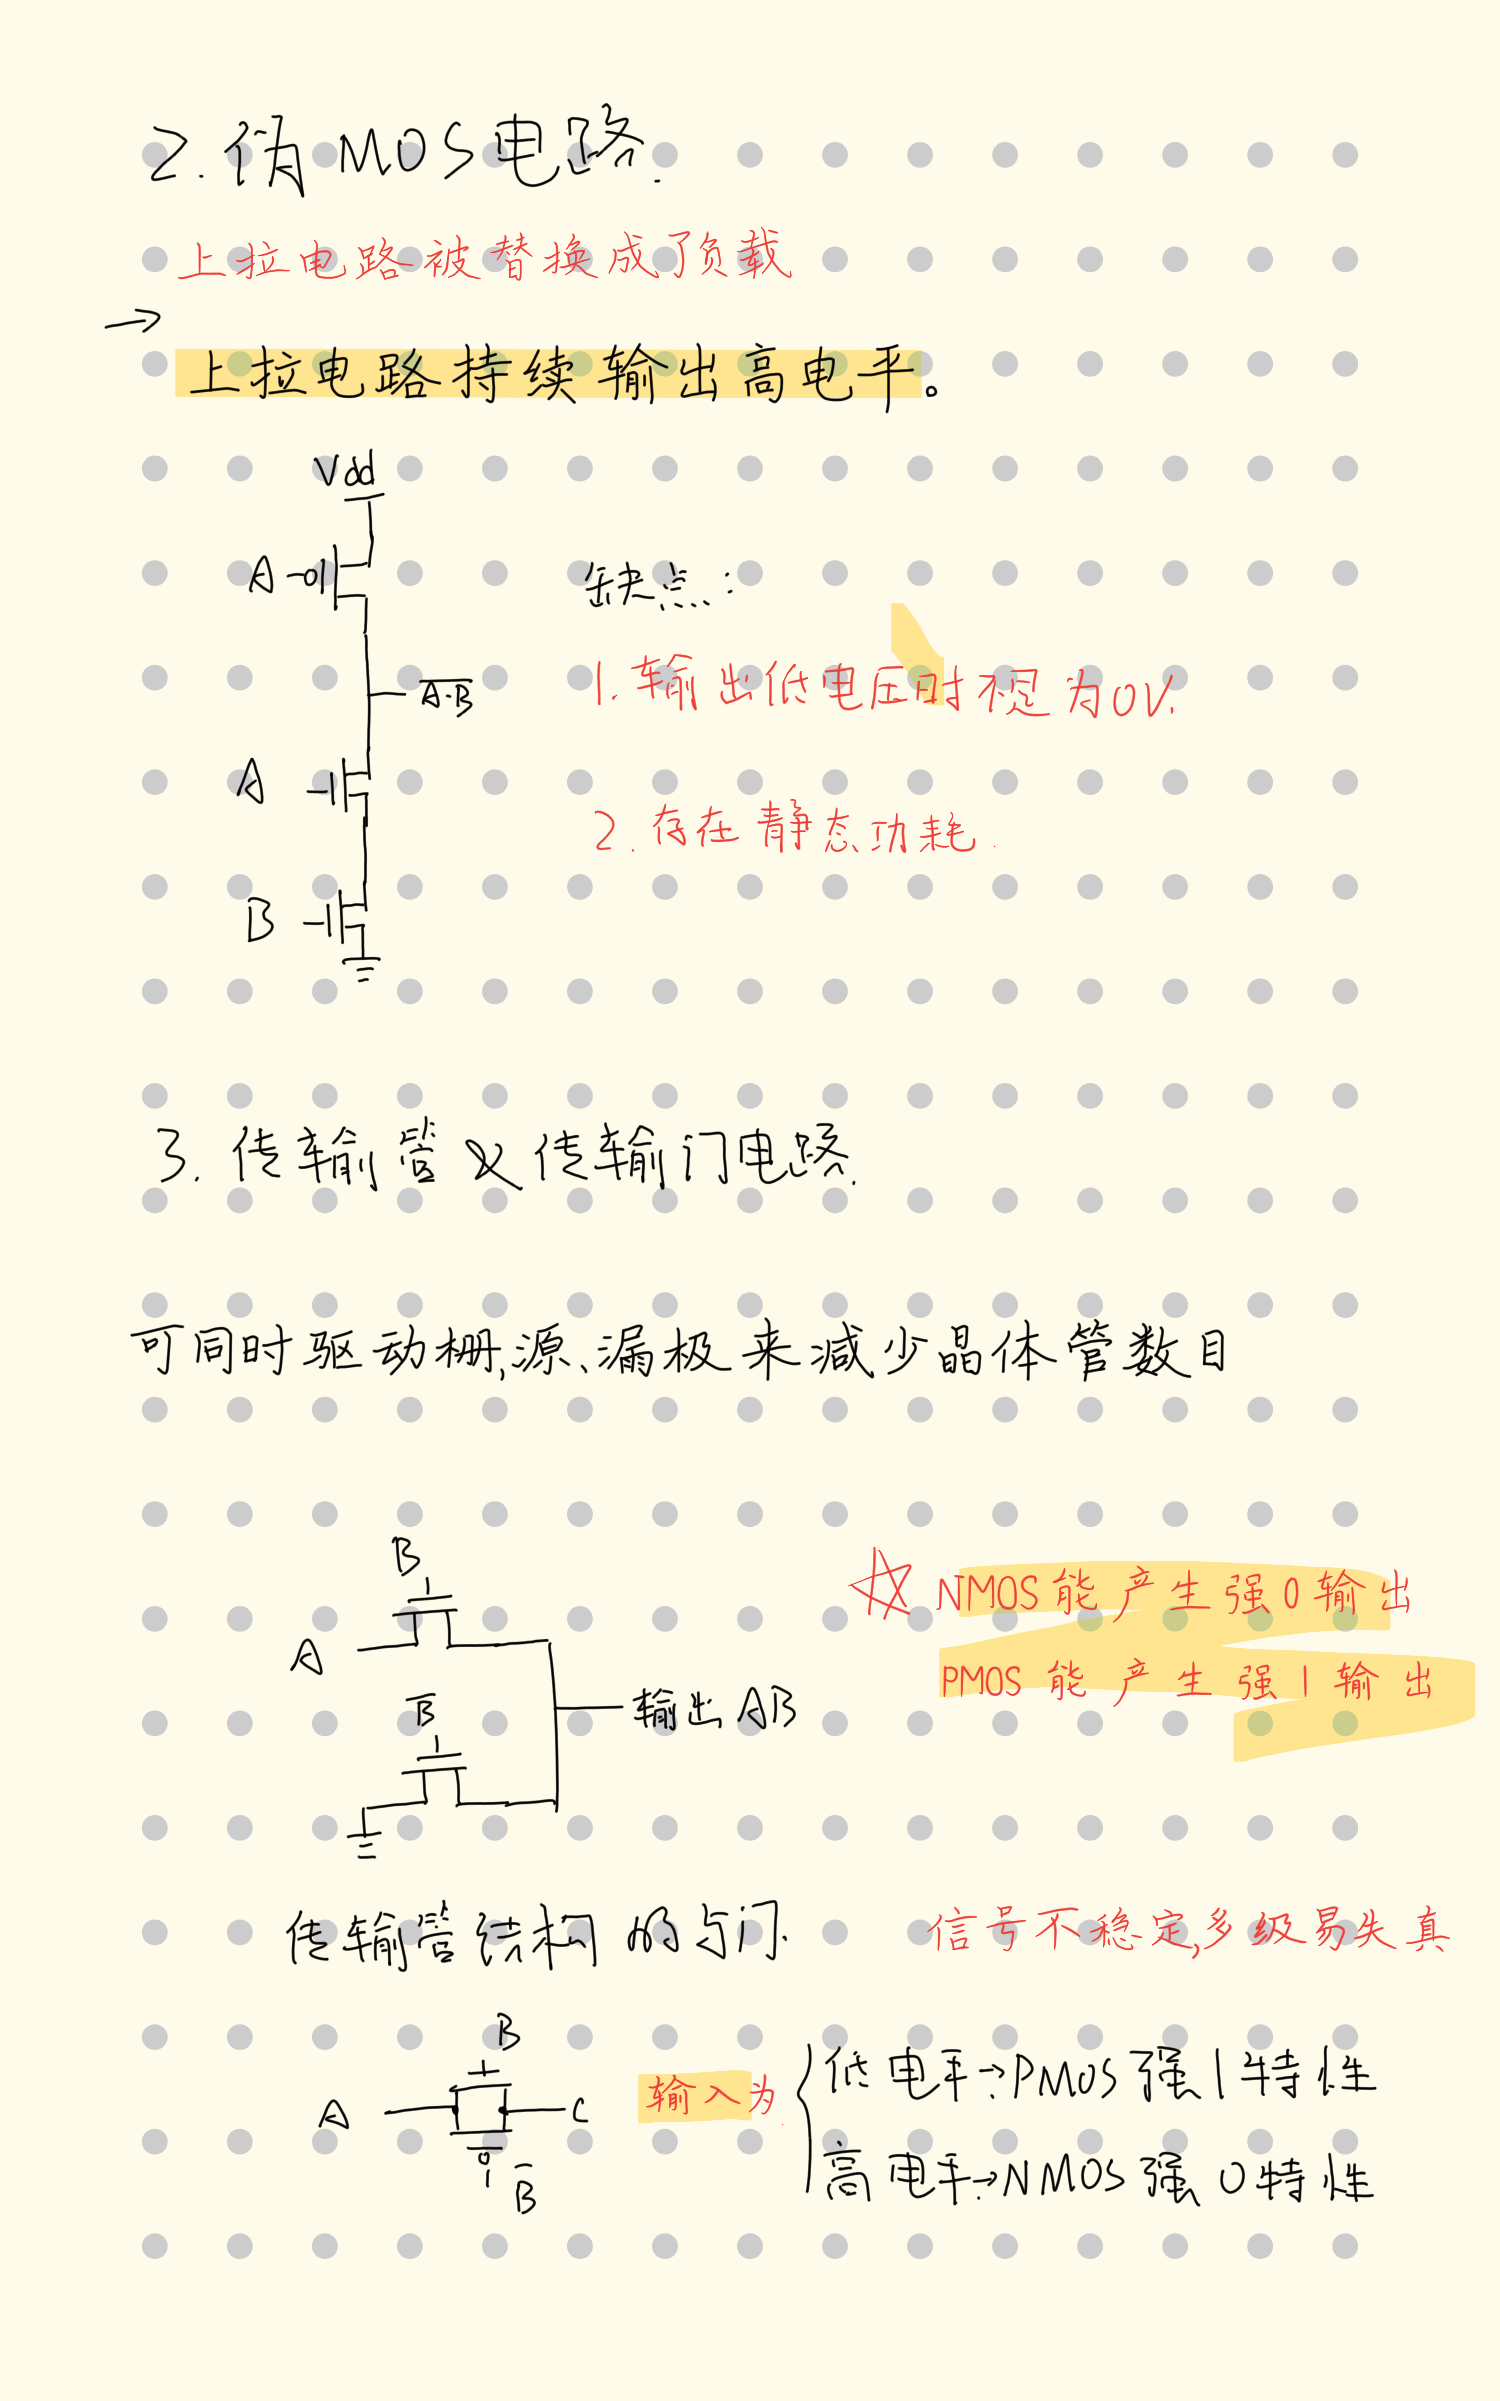 2. 伪MOS电路.
上拉电路被替换成了负载
→
上拉电路持续输出高电平。
Vdd
A
缺点:
1. 输出低电压时不是为0V.
A̅·̅B̅
A
2. 存在静态功耗.
B
3. 传输管 & 传输门电路.
可同时驱动栅,源、漏极来减少晶体管数目
B
☆ NMOS能产生强0输出
A
PMOS能产生强1输出
B̅
输出AB
传输管结构的与门.
信号不稳定,多级易失真
B
A
C
输入为.
低电平→PMOS强1特性
高电平→NMOS强0特性
B̅